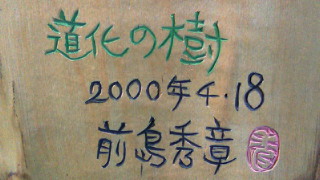 道化の樹
2000年4.18
前島秀章